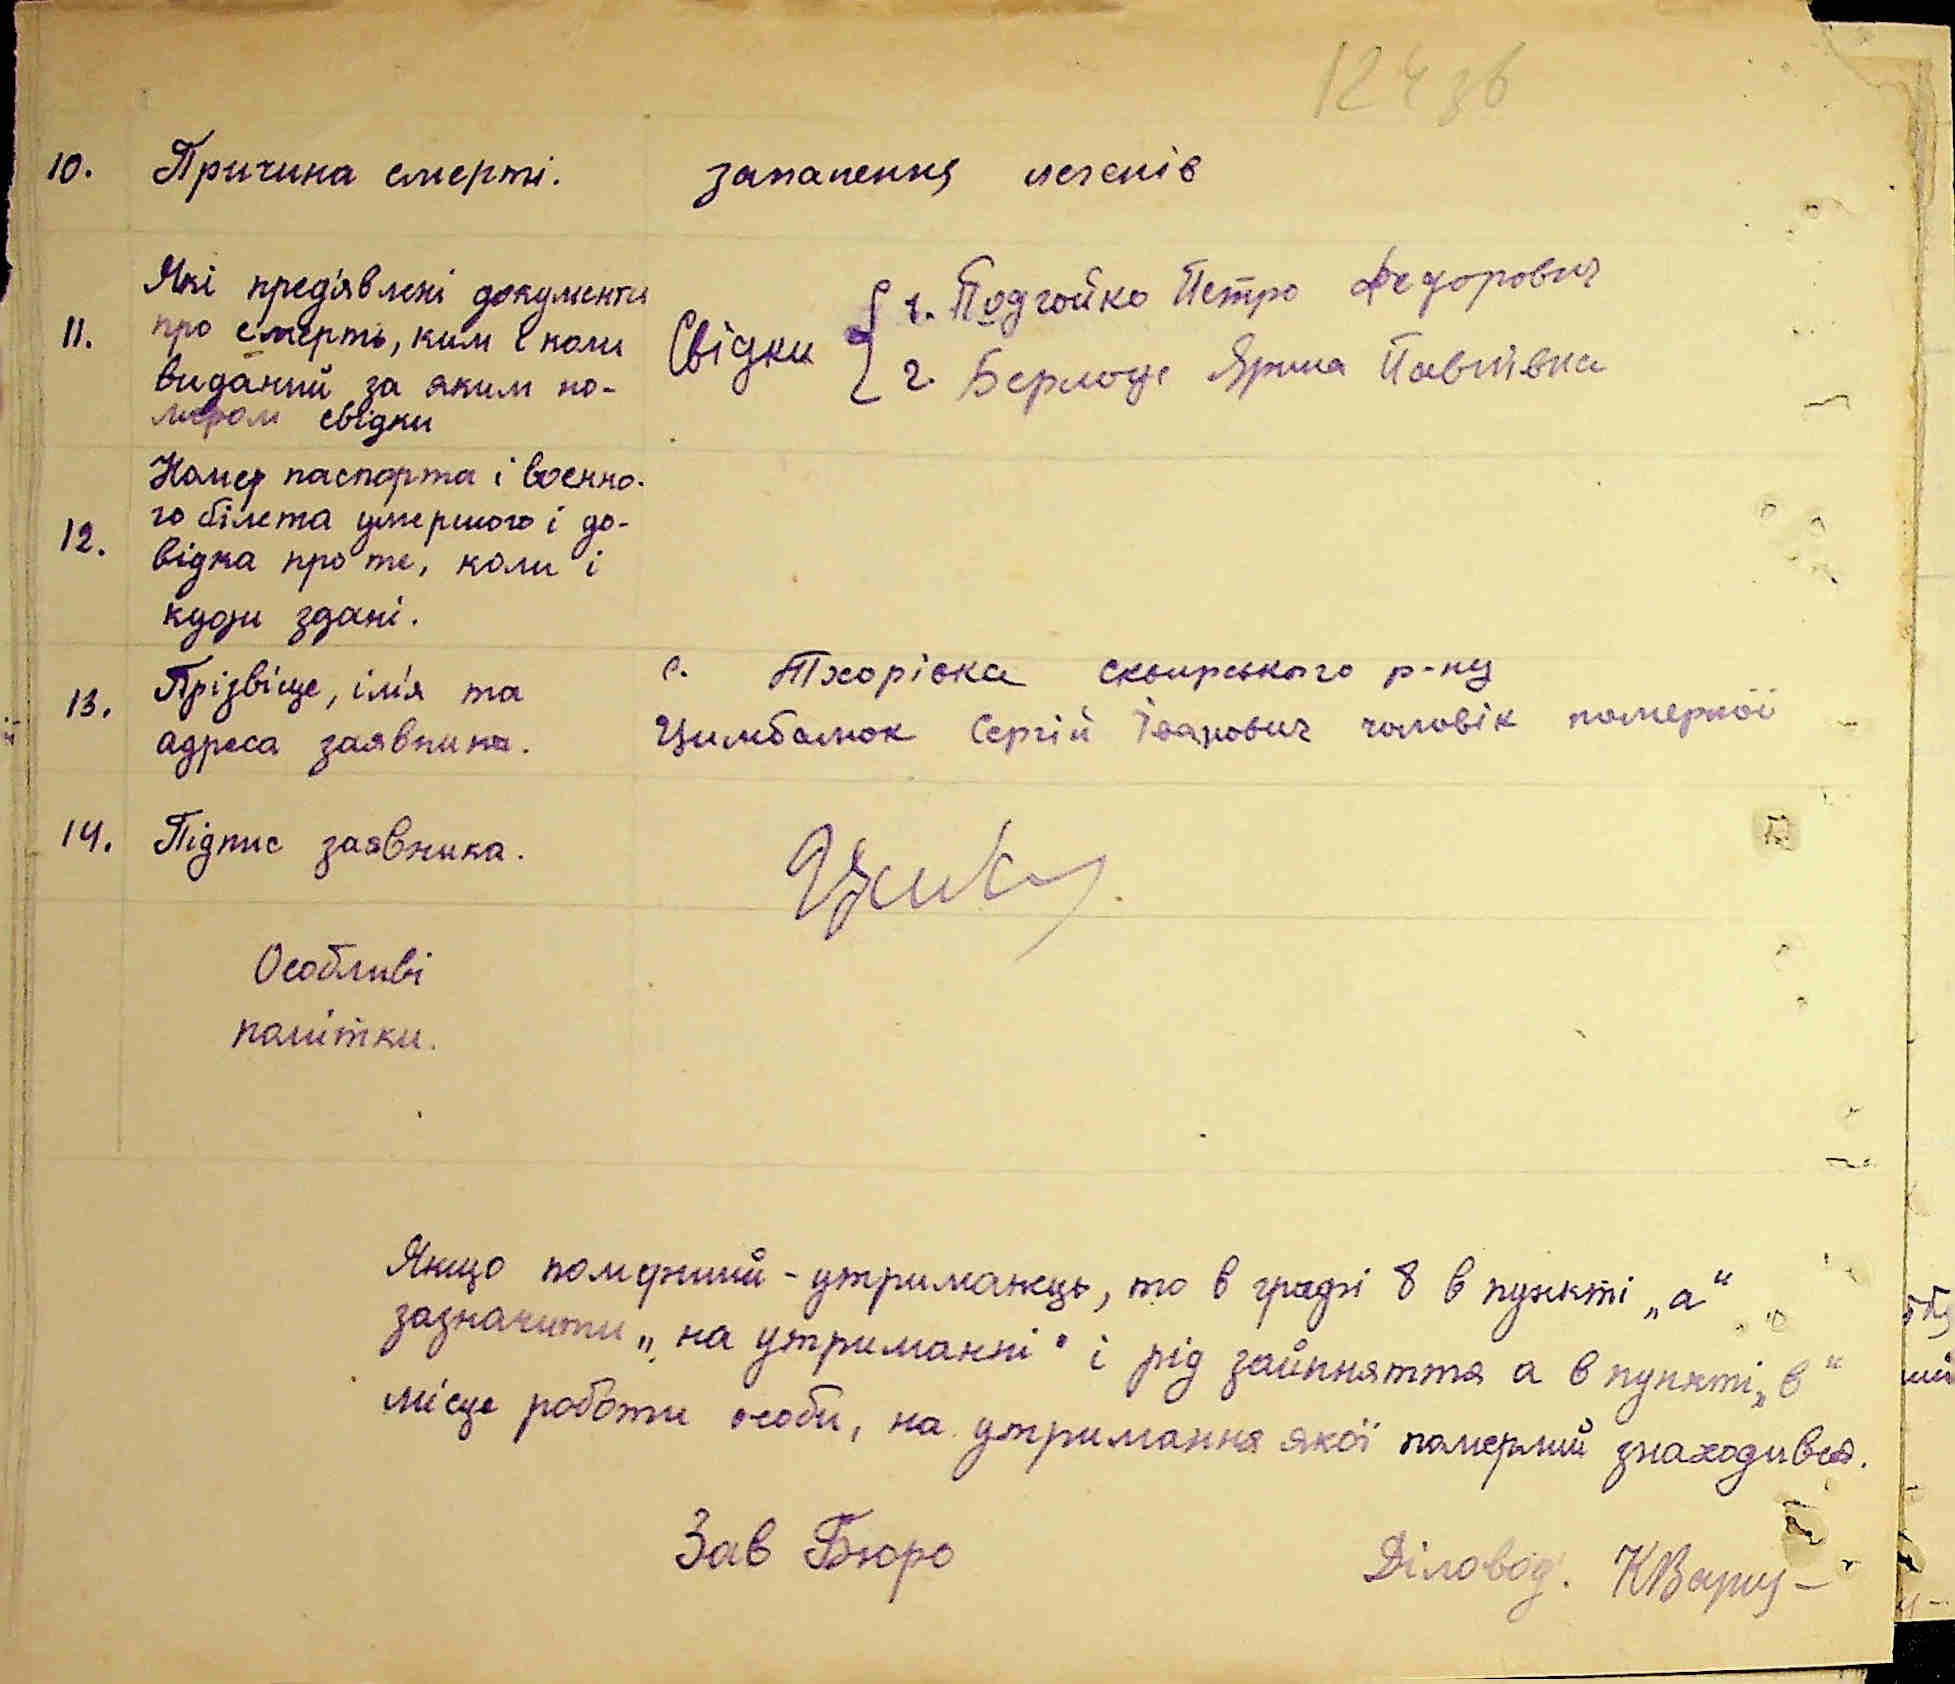 124 зв
10. Причина смерті. запалення легенів
Які пред'явлені документи
11. про смерть, ким і коли
виданий за яким но-
мером свідки
Свідки { 1. Подгойко Петро Федорович
2. Ярина Павлівна
Номер паспорта і воєнно-
12. го білета умершого і до-
відка про те, коли і
куди здані.
13. Прізвіще, ім'я та
адреса заявника.
с. Тхорівка сквирського р-ну
Цимбалюк Сергій Іванович чоловік помершої
14. Підпис заявника.
Особливі
помітки.
Якщо померший - утриманець, то в графі 8 в пункті „а“
зазначити „на утриманні“ і рід зайнняття а в пункті „в“
місце роботи особи, на утримання якої померший знаходився.
Зав Бюро Діловод.